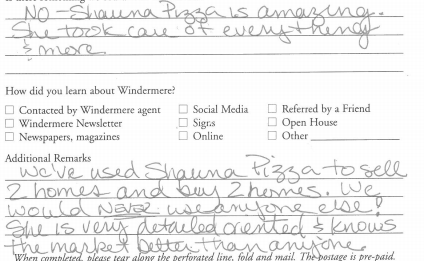 NO - Shauna Pizza is amazing.
She took care of everything
& more
How did you learn about Windermere?
☐ Contacted by Windermere agent ☐ Social Media ☐ Referred by a Friend
☐ Windermere Newsletter ☐ Signs ☐ Open House
☐ Newspapers, magazines ☐ Online ☐ Other
Additional Remarks
We've used Shauna Pizza to sell
2 homes and buy 2 homes. We
would NEVER use anyone else!
She is very detailed oriented & knows
the market better than anyone.
When completed, please tear along the perforated line, fold and mail. The postage is pre-paid.